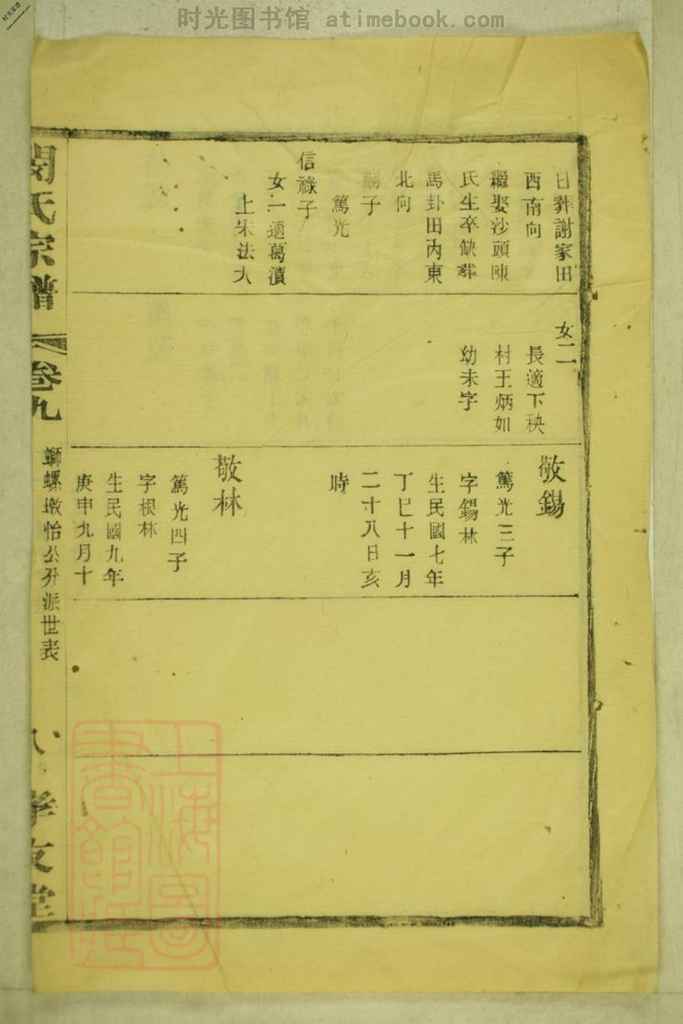 时光图书馆 atimebook.com
日葬謝家田
西南向
繼娶沙頭陳
氏生卒缺葬
馬卦田內東
北向
嗣子
篤光
信祿子
女一適葛瀆
上朱法大
女二
長適下秧
村王炳如
幼未字
敬錫
篤光三子
字錫林
生民國七年
丁巳十一月
二十八日亥
時
敬林
篤光四子
字根林
生民國九年
庚申九月十
氏宗譜
卷九
螄螺墩怡公分派世表
八
孝友堂
上海圖書館藏